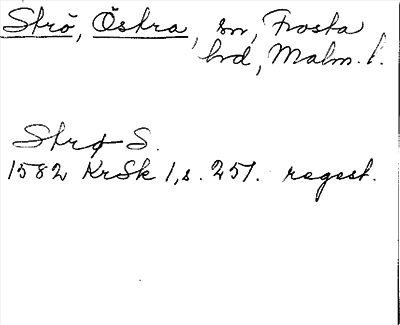 Strö, Östra, sn, Frosta
hd, Malm. l.
Strø S.
1582 KrSk 1, s. 251. regest.